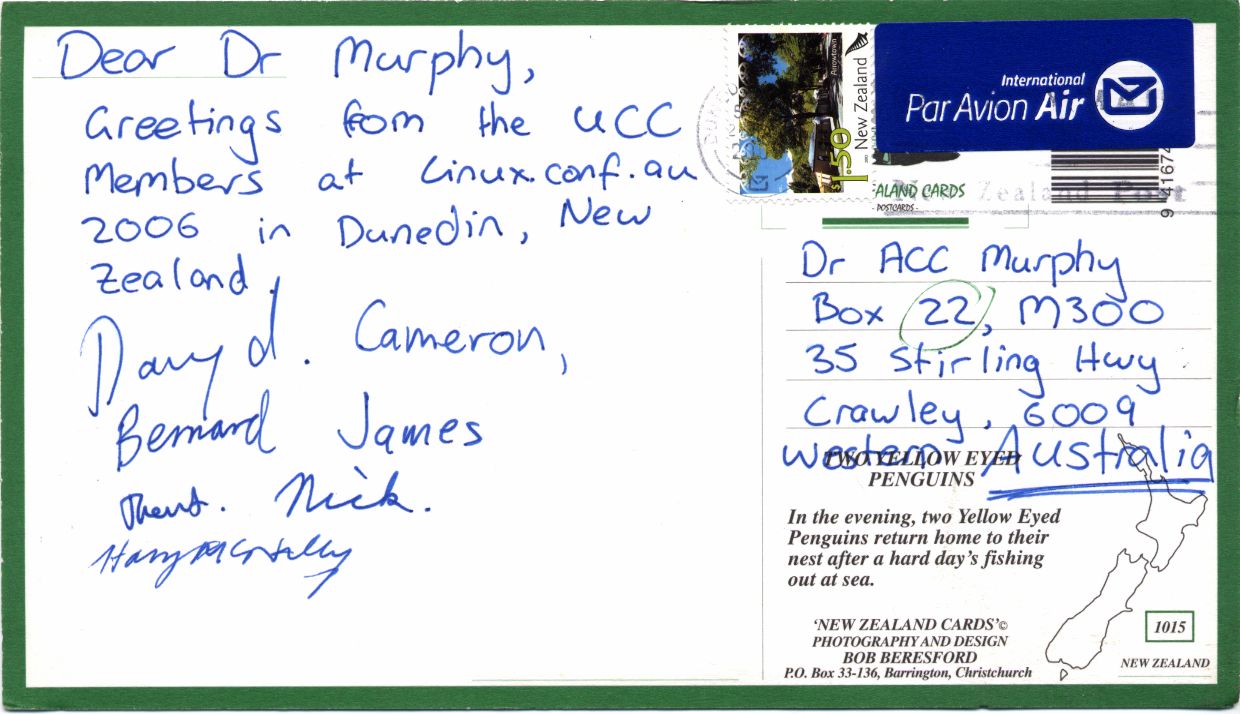 Dear Dr Murphy,
Greetings from the UCC
Members at Linux.conf.au
2006 in Dunedin, New
Zealand.
Davyd. Cameron,
Bernard James
Nick.
Arrowtown
New Zealand
$1.50
International
Par Avion Air
ALAND CARDS
- POSTCARDS -
New Zealand Post
9 41674
Dr ACC Murphy
Box 22, M300
35 Stirling Hwy
Crawley, 6009
Western Australia
TWO YELLOW EYED
PENGUINS
In the evening, two Yellow Eyed
Penguins return home to their
nest after a hard day's fishing
out at sea.
'NEW ZEALAND CARDS'©
PHOTOGRAPHY AND DESIGN
BOB BERESFORD
P.O. Box 33-136, Barrington, Christchurch
1015
NEW ZEALAND